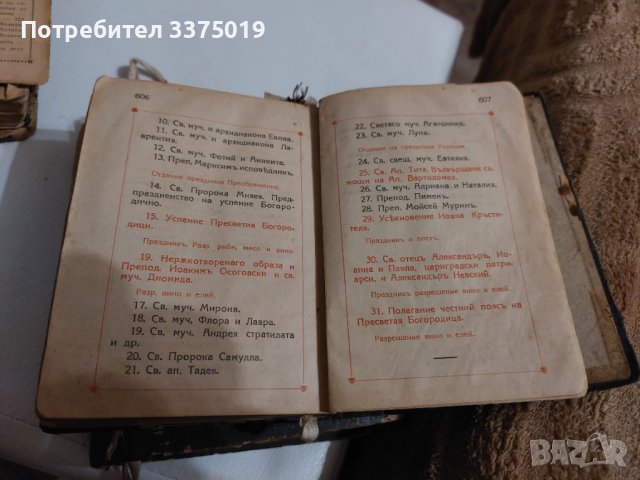 Потребител 3375019
606
10. Св. муч. и архидиакона Евпла.
11. Св. муч. и архидиакона Ла-
врентия.
12. Св. муч. Фотий и Аникита.
13. Преп. Марксим исповѣдник.
Отдание праздника Преображение.
14. Св. Пророка Михея. Пред-
празднинство на успение Богоро-
дично.
15. Успение Пресветия Богоро-
дици.
Праздникъ. Разр. риби, месо и вино.
19. Нержкотворенаго образа и
Препод. Иоаким Осоговски и св.
муч. Диомида.
Разр. вино и елей.
17. Св. муч. Мирона.
18. Св. муч. Флора и Лавра.
19. Св. муч. Андрея стратидата
и др.
20. Св. Пророка Самулла.
21. Св. ап. Тадея.
607
22. Светаго муч. Агатоника.
23. Св. муч. Лупа.
Отдание на праздника Успение.
24. Св. свещ. муч. Евтихия.
25. Св. Ап. Тита. Възвѣрщане св.
мощи на Ап. Вартоломея.
26. Св. муч. Адриана и Наталия.
27. Препод. Пимень.
28. Преп. Мойсей Мурин.
29. Усѣкновение Иоана Кръсти-
теля.
Праздникъ и постъ.
30. Св. отец Александъръ, Ио-
анна и Павла, цариградски патри-
арси, и Александъръ Невский.
Праздникъ разрешение вино и елей.
31. Полагание честний поясъ на
Пресветая Богородица.
Разрешение вино и елей.
bazar.bg